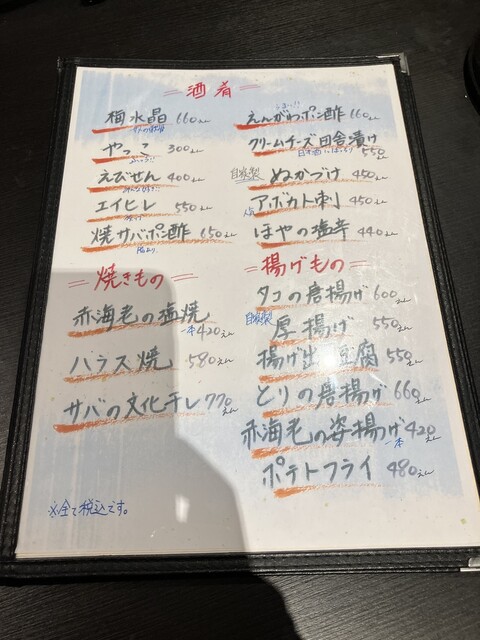 酒肴
梅水晶 660えん
やっこ 300えん
えびせん 400えん
エイヒレ 550えん
焼サバポン酢 650えん
えんがわポン酢 660えん
クリームチーズ田舎漬け 550えん
自家製 ぬかづけ 450えん
人気 アボカド刺 450えん
ほやの塩辛 440えん
焼きもの
赤海老の塩焼 一本420えん
ハラス焼 580えん
サバの文化干し 770えん
揚げもの
タコの唐揚げ 600えん
自家製 厚揚げ 550えん
揚げ出し豆腐 550えん
とりの唐揚げ 660えん
赤海老の姿揚げ 一本420えん
ポテトフライ 480えん
※全て税込です。